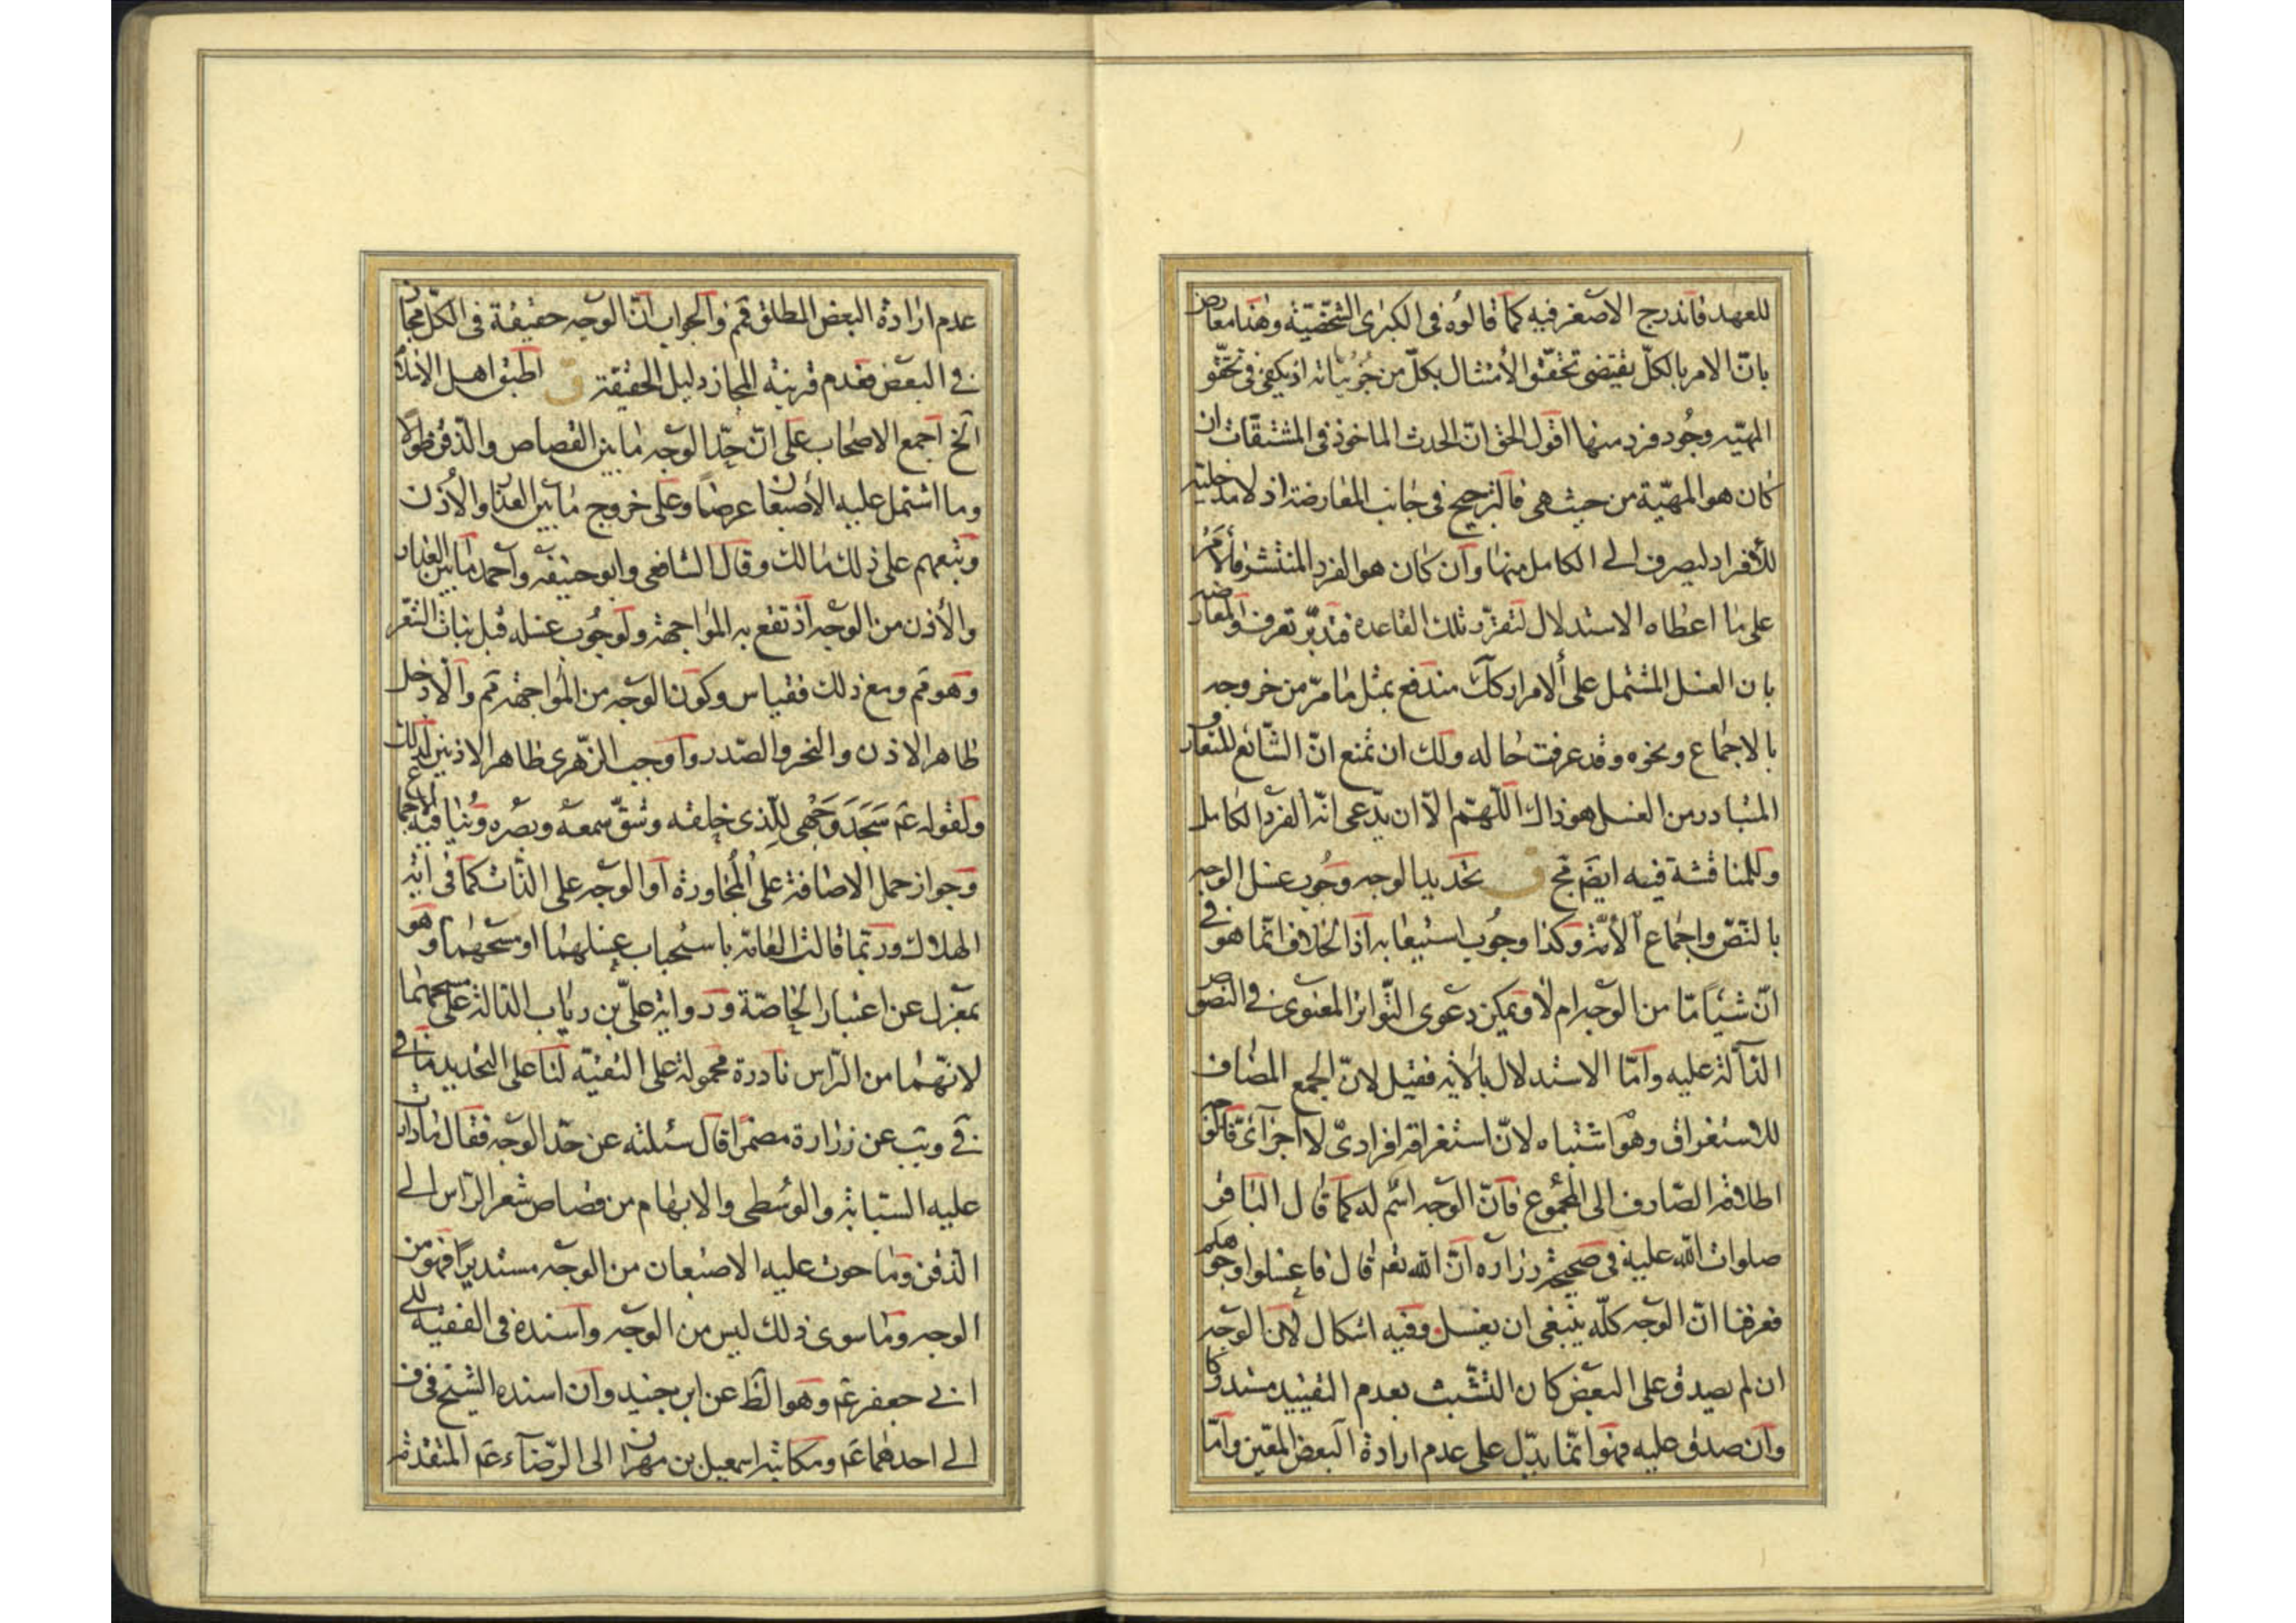 للعهد فاندرج الاصغر فيه كما قالوه فى الكبرى الشخصية وهذا معارض
بانّ الامر بالكلّ يقتضى تحقّق الأمتثال بكلّ من جزئياته اذ يكفى فى تحقّق
المهيّه وجُود فرد منها اقول الحق انّ الحدث الماخوذ فى المشتقّات ان
كان هو المهيّة من حيث هى فالترجيح فى جانب المعارضة اذ لا مدخلية
للأفراد ليصرف الى الكامل منها وان كان هو الفرد المنتشر فالأمر
على ما اعطاه الاستدلال لتقرّر تلك القاعدة فتدبّر تعرف والمعارضه
بان الغسل المشتمل على ألامرار كك مندفع بمثل ما مرّ من خروجه
بالاجماع ونحوه وقد عرفت حاله ولك ان تمنع انّ الشّائع المتعارف
المتبادر من الغسل هو ذاك اللّهتم الّا ان يدّعى انّه الفرد الكامل
وللمناقشة فيه ايضَ مج ق تحديد الوجه وجُوب غسل الوجه
بالنّصّ واجماع الأمّة وكذا وجُوب استيعابه اذ الخلاف انّما هو فى
انّ شيئاً مّا من الوجه ام لا ويمكن دعوى التّواتر المعنوى فى النّصوص
الدّالة عليه وامّا الاستدلال بالأيه فقيل لانّ الجمع المضاف
للاستغراق وهو اشتباه لانّ استغراقه افرادىّ لا اجزائىّ فالوجه
اطلاقه الصّارف الى المجموع فانّ الوجه اسم له كما قال الباقر
صلوات الله عليه فى صحيحة زراره انّ الله تعَ قال فاغسلوا وجوهكم
فعرفنا انّ الوجه كلّه ينبغى ان يغسل وفيه اشكال لأنّ الوجه
ان لم يصدق على البعض كان التشّبث بعدم التقييد مستدركا
وان صدق عليه فهو انّما يدّل على عدم ارادة البعض المعّين وامّا
عدم ارادة البعض المطلق فمَم والجواب انّ الوجه حقيقة فى الكلّ مجاز
فى البعض فعدم قرينة المجاز دليل الحقيقة ق اطبق اهل
الخ اجمع الاصحاب على انّ حدّ الوجه ما بين القصاص والذّقن طولا
وما اشتمل عليه الأصبعان عرضاً وعلى خروج ما بين العذار والأذن
وتبعهم على ذلك مالك وقال الشافعى وابو حنيفه واحمد ما بين العذار
والأذن من الوجه اذ تقع به المواجهة ولوجُوب غسله قبل نبات الشّعر
وهو مَم ومع ذلك فقياس وكون الوجه من المُواجهة مَم والّا دخل
ظاهر الاذن والنحر والصّدر واوجب الزّهرى ظاهر الاذنين لذلك
ولقوله عَم سَجَدَ وَجْهى للّذى خلقه وشقّ سمعه وبصره وينافيه الاجماع
وجواز حمل الاضافة على المُجاورة او الوجه على الذّات كما فى آية
الهلاك وربّما قالت العامّه باستحباب غسلهما او مسحهما وهو
بمعزل عن اعتبار الخاصّة ورواية علىّ بن رياب الدالة على مسحهما
لانّهما من الرّاس نادرة محمولة على التقيّه لنا على التحديد ما فى
فى ويب عن زرارة مضمرًا قال سئلته عن حدّ الوجه فقال ما دارت
عليه السّبّابة والوُسطى والابهام من قصاص شعر الرّاس الى
الذّقن وما حوت عليه الاصبعان من الوجه مستديرًا فهو من
الوجه وما سوى ذلك ليس من الوجه واسنده فى الفقيه الى
ابى جعفر عَم وهو الظَ عن ابن جنيد وان اسنده الشيخ فى ف
الى احدهما عَم ومكاتبة اسمعيل بن مهران الى الرّضا عَم المتقدّمة